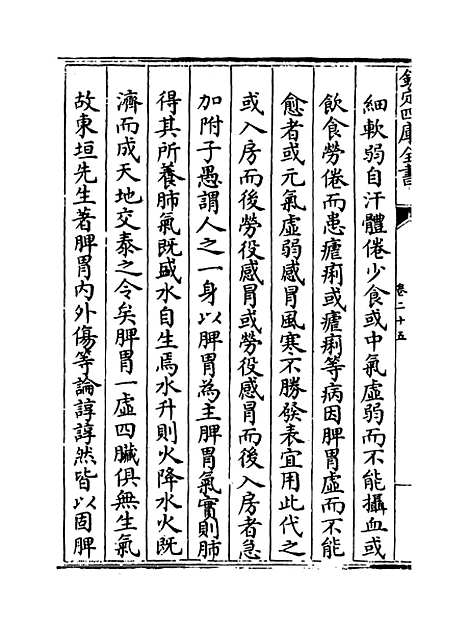 欽定四庫全書
卷二十五
細軟弱自汗體倦少食或中氣虛弱而不能攝血或
飲食勞倦而患瘧痢或瘧痢等病因脾胃虛而不能
愈者或元氣虛弱感冒風寒不勝發表宜用此代之
或入房而後勞役感冒或勞役感冒而後入房者急
加附子愚謂人之一身以脾胃為主脾胃氣實則肺
得其所養肺氣既盛水自生焉水升則火降水火既
濟而成天地交泰之令矣脾胃一虛四臟俱無生氣
故東垣先生著脾胃內外傷等論諄諄然皆以固脾